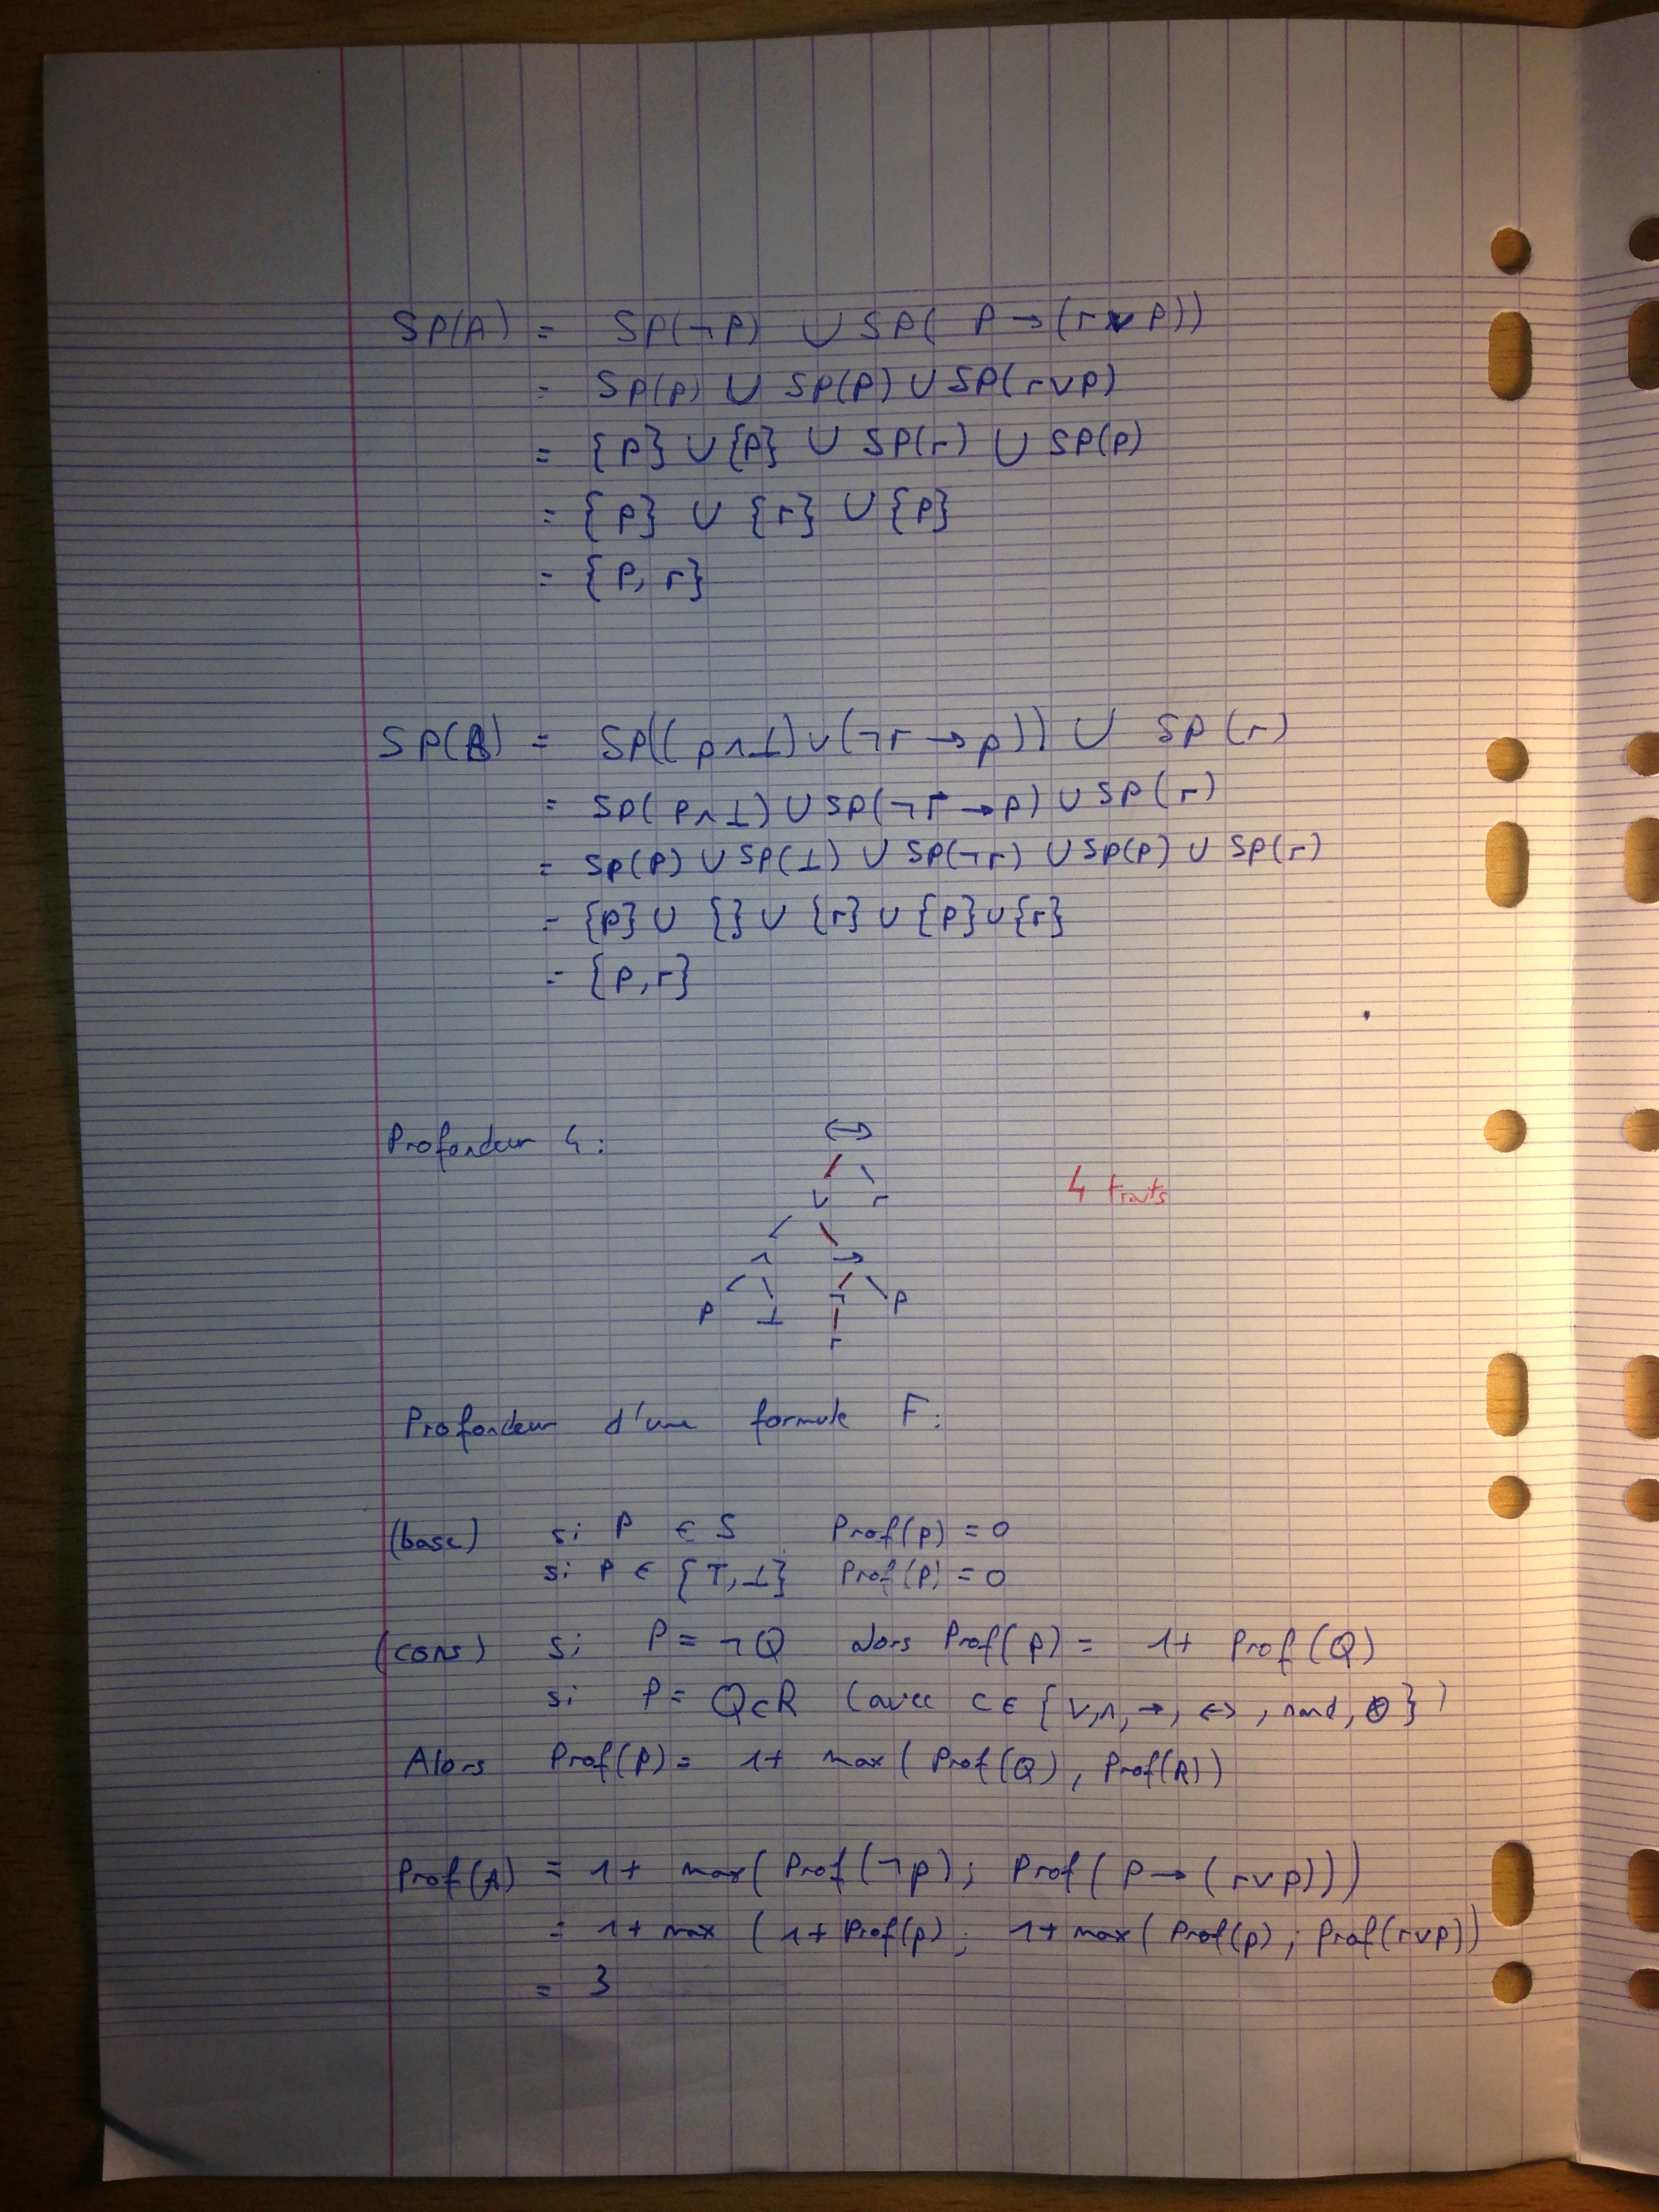 SP(A) = SP(¬p) ∪ SP( p → (r ∨ p))
= SP(p) ∪ SP(p) ∪ SP(r∨p)
= {p} ∪ {p} ∪ SP(r) ∪ SP(p)
= {p} ∪ {r} ∪ {p}
= {p, r}
SP(B) = SP((p∧⊥)∨(¬r → p)) ∪ SP(r)
= SP(p∧⊥) ∪ SP(¬r → p) ∪ SP(r)
= SP(p) ∪ SP(⊥) ∪ SP(¬r) ∪ SP(p) ∪ SP(r)
= {p} ∪ {} ∪ {r} ∪ {p} ∪ {r}
= {p, r}
Profondeur 4 :
↔
∨ r
4 traits
∧ →
p ⊥ ¬ p
r
Profondeur d'une formule F :
(base) si P ∈ S Prof(p) = 0
si P ∈ {T, ⊥} Prof(P) = 0
(cons) si P = ¬Q alors Prof(P) = 1+ Prof(Q)
si P = QcR (avec c ∈ {∨, ∧, →, ↔, nand, ⊗})
Alors Prof(P) = 1+ max(Prof(Q), Prof(R))
Prof(A) = 1+ max(Prof(¬p); Prof(p → (r∨p)))
= 1+ max (1+ Prof(p); 1+ max(Prof(p); Prof(r∨p))
= 3